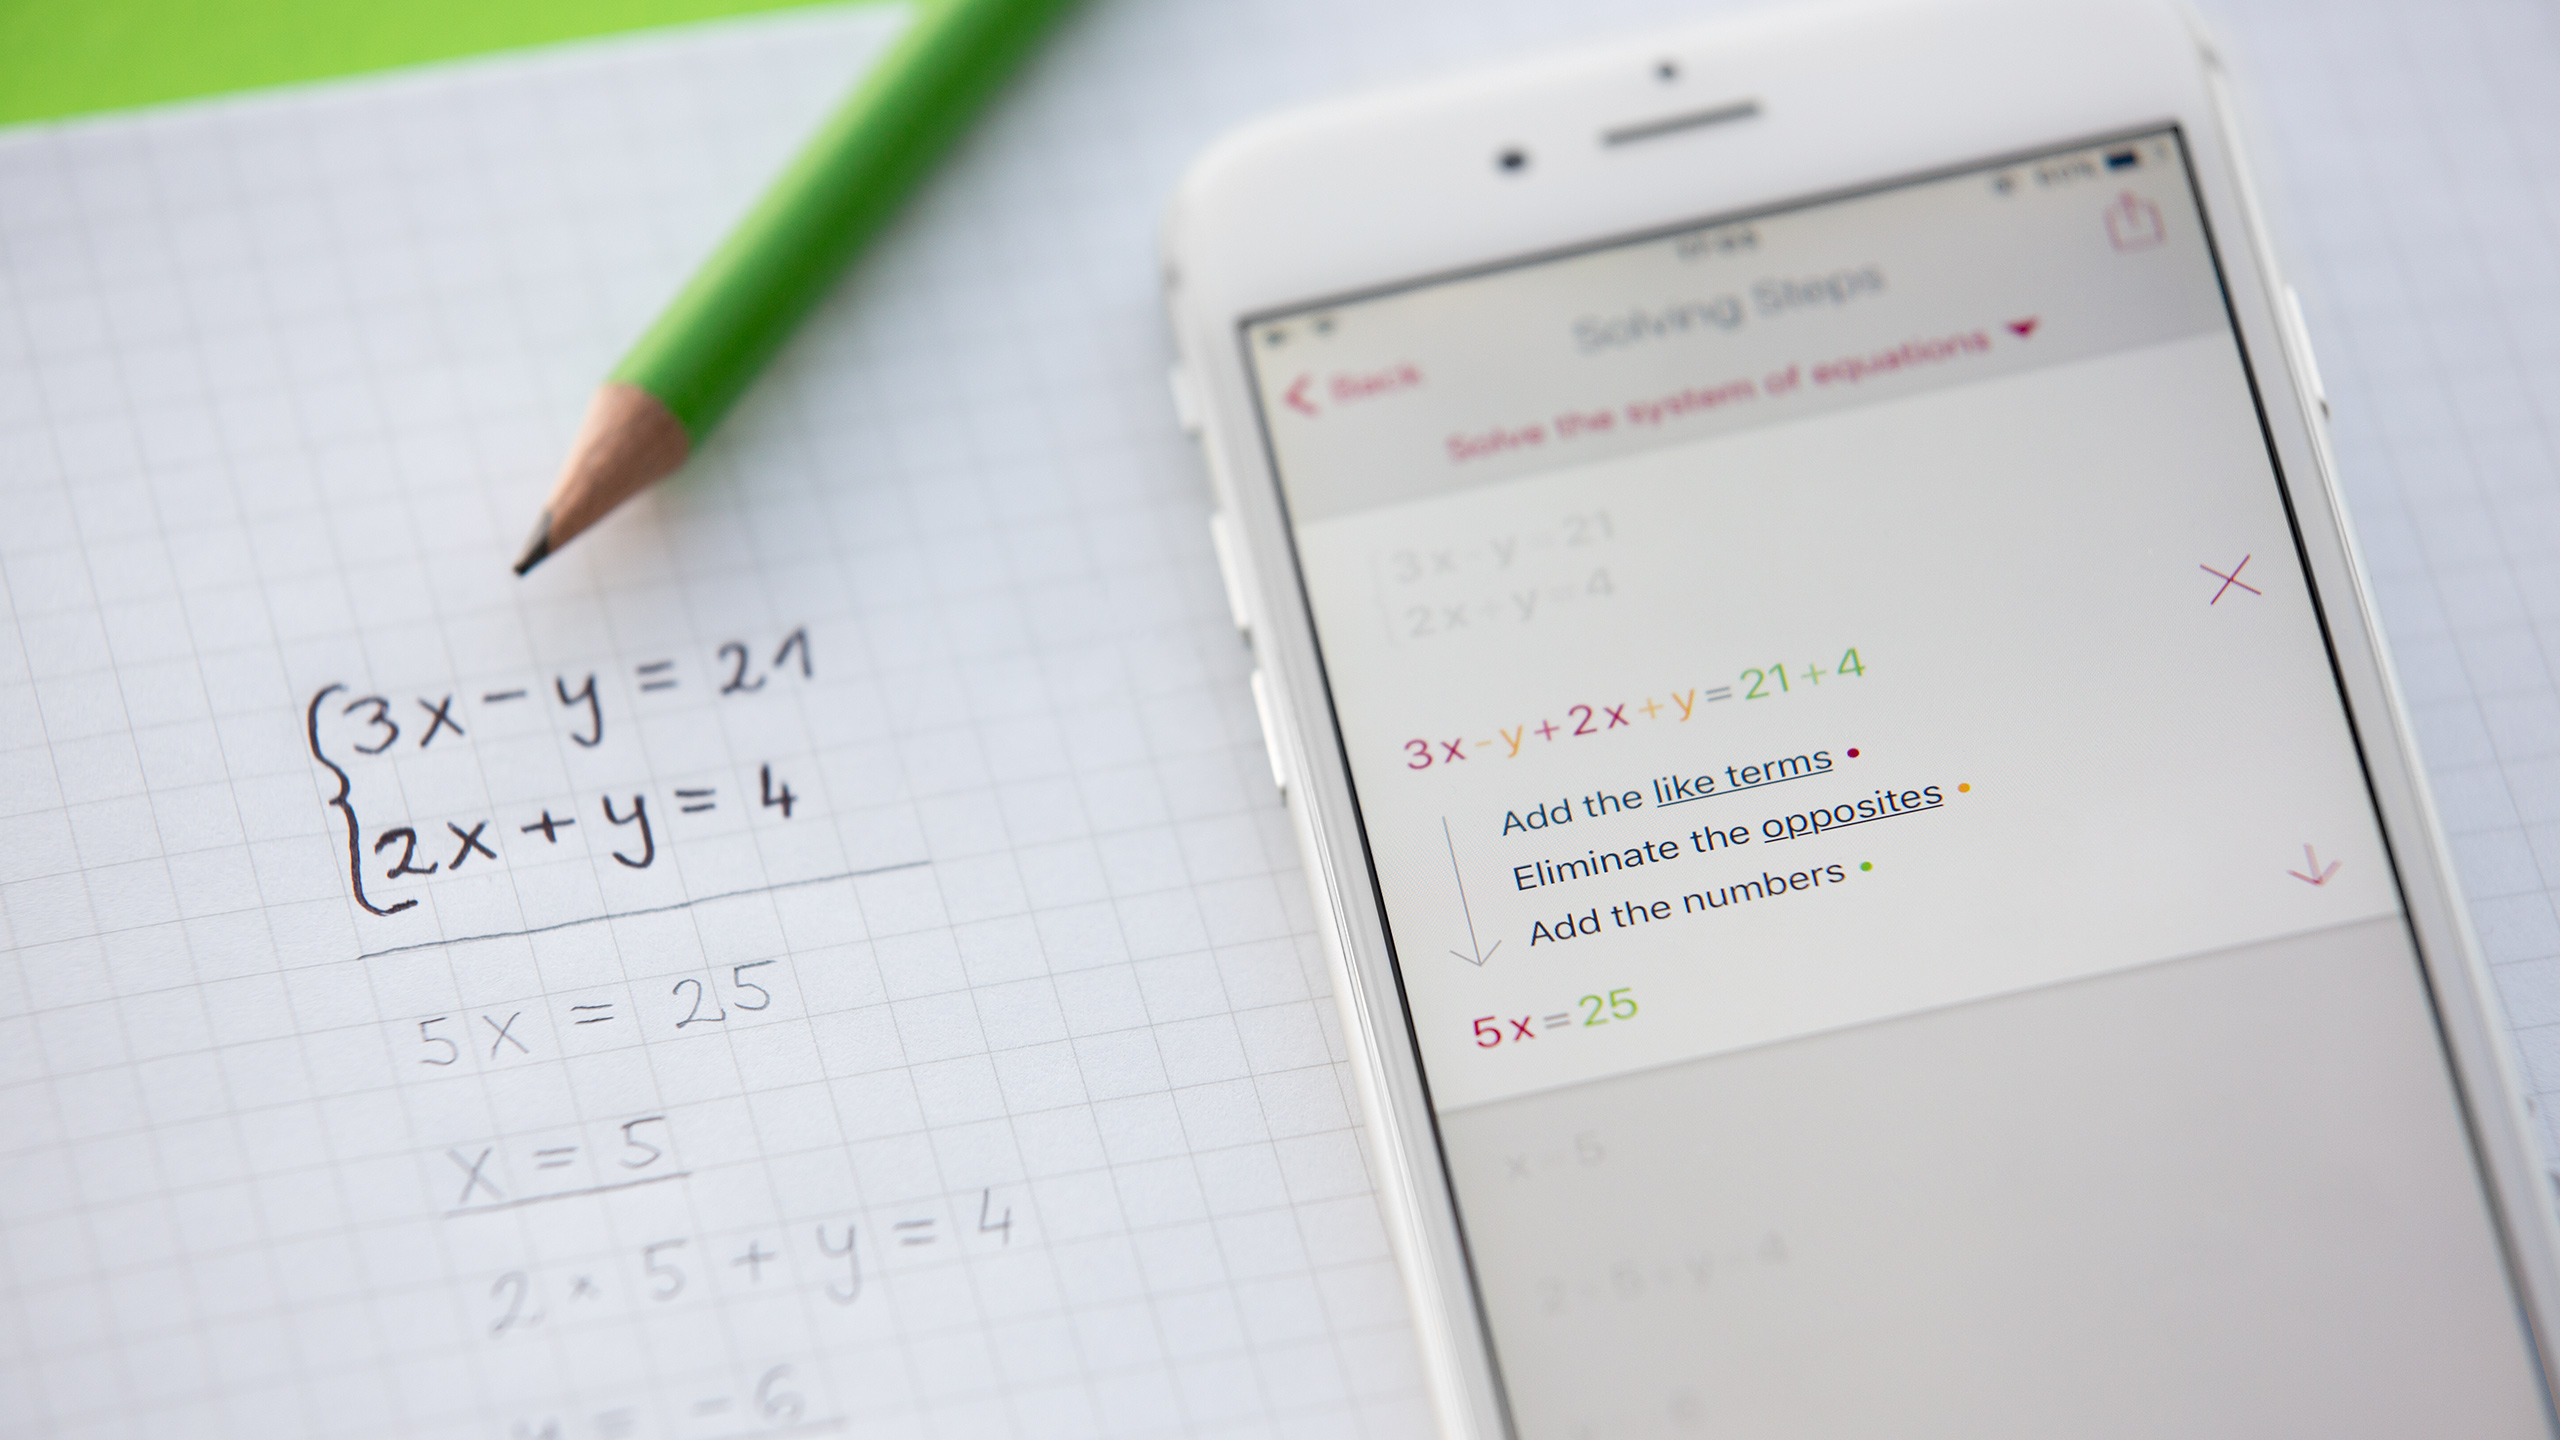 3x - y = 21
2x + y = 4
5x = 25
x = 5
2 * 5 + y = 4
y = -6
Solving Steps
Back
Solve the system of equations
3x - y = 21
2x + y = 4
3x - y + 2x + y = 21 + 4
Add the like terms
Eliminate the opposites
Add the numbers
5x = 25
x = 5
2 * 5 + y = 4